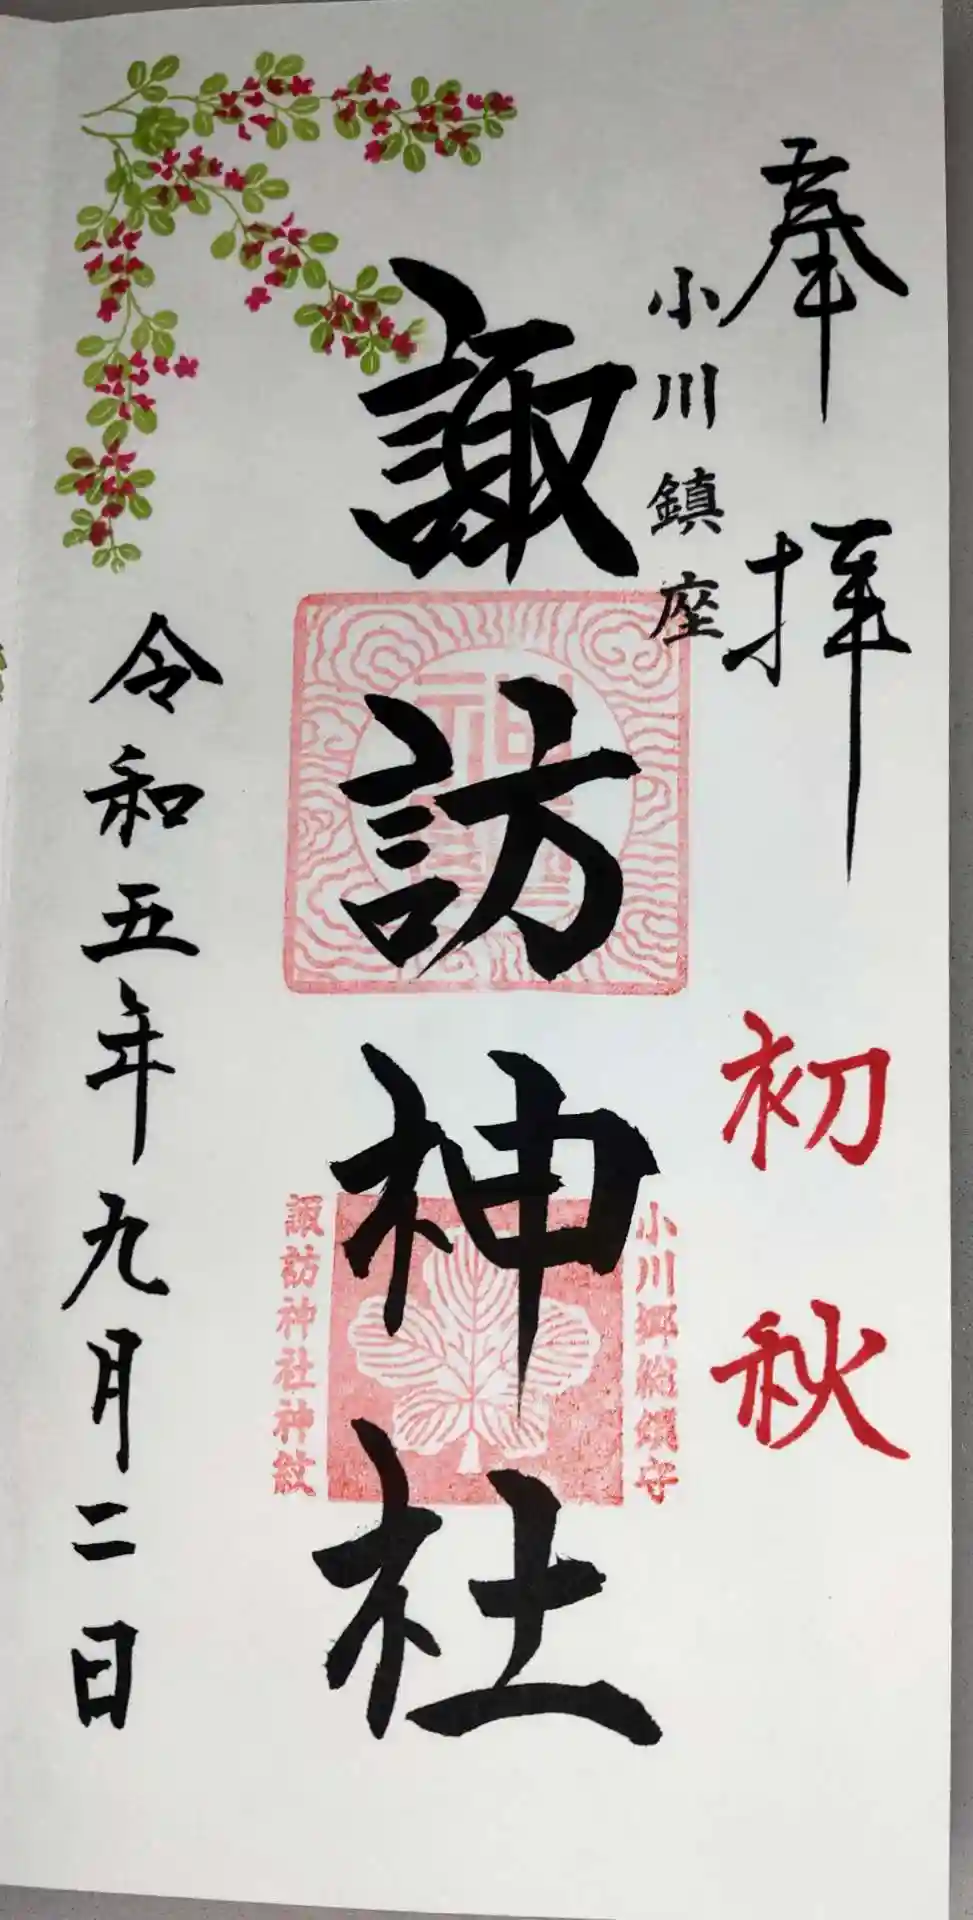 奉拝
初秋
小川鎮座
諏訪神社
小川郷総鎮守
諏訪神社神紋
令和五年九月二日